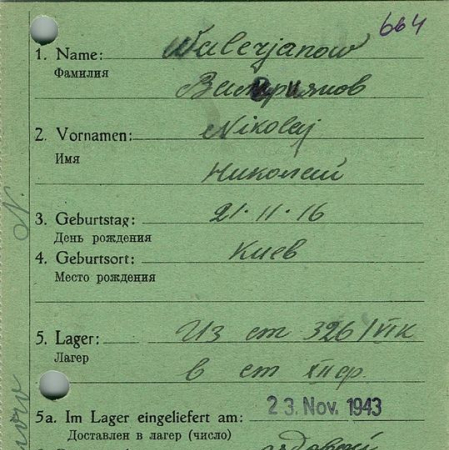 664
1. Name: Walerjanow
Фамилия
2. Vornamen: Nikolaj
Имя Николай
3. Geburtstag: 21·11·16
День рождения
4. Geburtsort: Киев
Место рождения
5. Lager: Из ст 326/VIK
Лагер в ст XIIF.
5a. Im Lager eingeliefert am: 23. Nov. 1943
Доставлен в лагер (число)